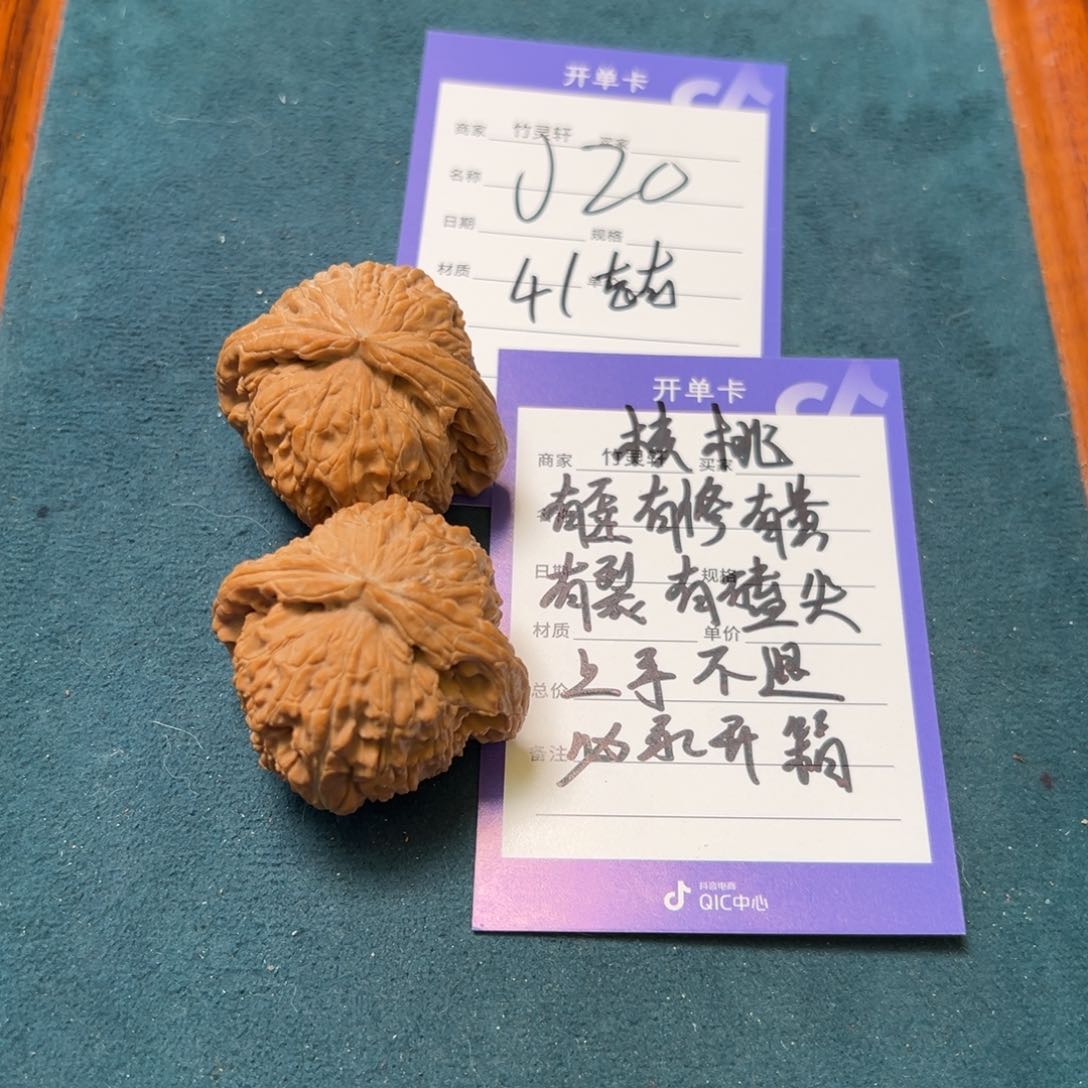 开单卡
商家 竹灵轩 买家
名称 J20
日期 规格
材质 41左右
开单卡
核桃
商家 竹灵轩 买家
有歪有修有黄
日期 规格
有裂 有磕尖
材质 单价
总价 上手不退
备注 必录开箱
抖音电商
QIC中心